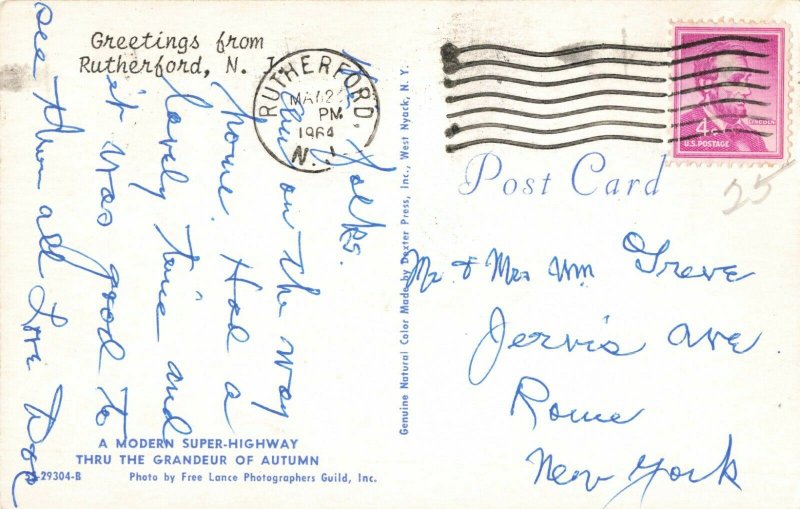 Greetings from
Rutherford, N. J.
RUTHERFORD,
PM
1964
N. J.
LINCOLN
4¢
U.S. POSTAGE
Post Card
25
Hi, Folks.
on the way
home. Had a
lovely time and
it was good to
see them all Love
Mr. & Mrs Wm. Greve
Jervis Ave.
Rome
New York
Genuine Natural Color Made by Dexter Press, Inc., West Nyack, N. Y.
A MODERN SUPER-HIGHWAY
THRU THE GRANDEUR OF AUTUMN
29304-B Photo by Free Lance Photographers Guild, Inc.